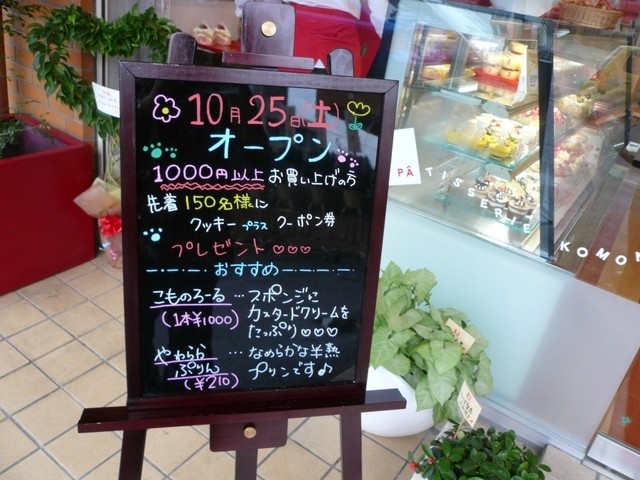 10月25日(土)
オープン
1000円以上お買い上げの方
先着150名様に
クッキープラスクーポン券
プレゼント♡♡♡
おすすめ
こものろーる…スポンジに
(1本¥1000)カスタードクリームを
たっぷり♡♡♡
やわらか…なめらかな半熟
ぷりんプリンです♪
(¥210)
PÂTISSERIE
KOMO